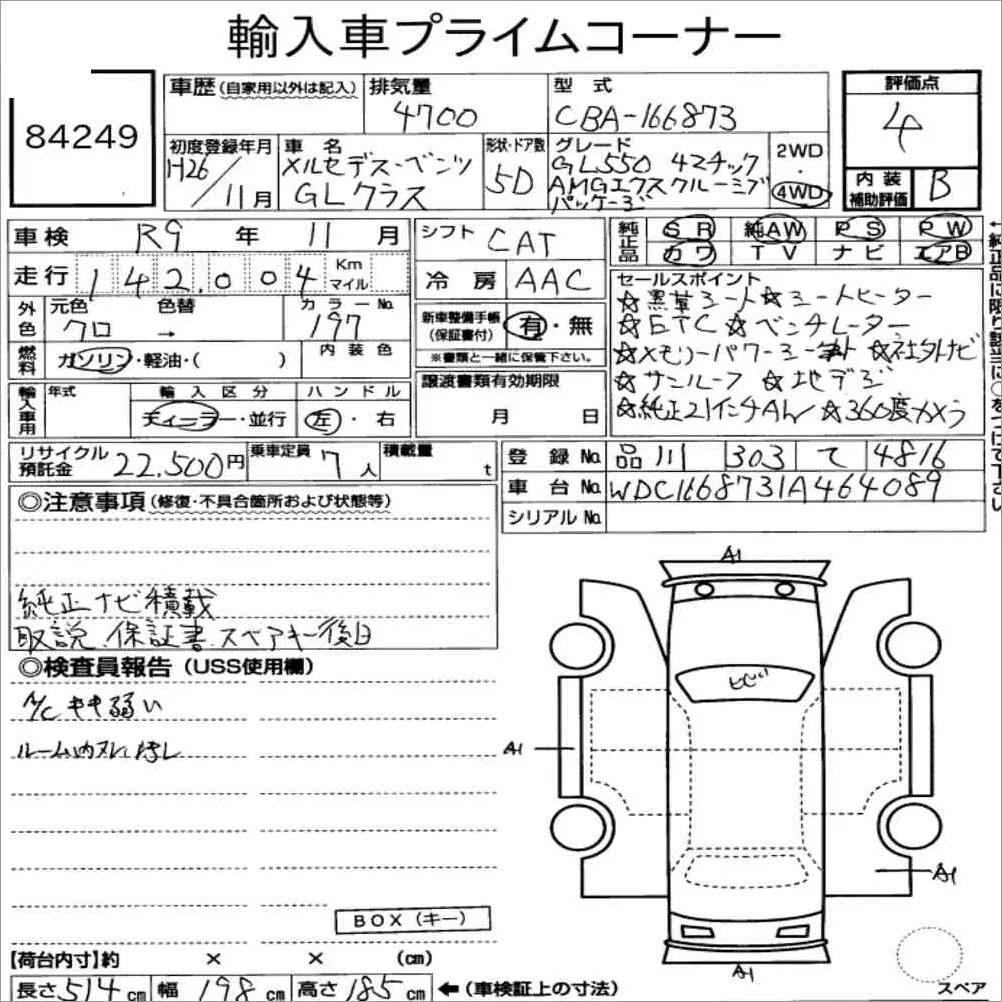 輸入車プライムコーナー
84249
車歴(自家用以外は記入)
排気量
4700
型 式
CBA-166873
評価点
4
内 装
補助評価
B
初度登録年月
H26/11月
車 名
メルセデス・ベンツ
GLクラス
形状・ドア数
5D
グレード
GL550 4マチック
AMGエクスクルーシブ
パッケージ
2WD
・
4WD
車検 R9 年 11 月
走行 142.004 Km マイル
外色
元色
クロ
色替
→
カラーNo
197
内 装 色
燃料
ガソリン・軽油・( )
輸入車用
年式
輸 入 区 分
ディーラー・並行
ハ ン ド ル
左・右
シフト CAT
冷 房 AAC
新車整備手帳
(保証書付)
有・無
※書類と一緒に保管下さい。
譲渡書類有効期限
月 日
純正品
SR 純AW PS PW
カワ TV ナビ エアB
セールスポイント
☆黒革シート☆シートヒーター
☆ETC ☆ベンチレーター
☆メモリーパワーシート ☆社外ナビ
☆サンルーフ ☆地デジ
☆純正21インチAW ☆360度カメラ
←純正品に限り該当に○をつけて下さい
リサイクル
預託金
22,500円
乗車定員 7人
積載量 t
登 録 No 品川 303 て 4816
車 台 No WDC1668731A464089
シリアル No
◎注意事項(修復・不具合箇所および状態等)
純正ナビ積載
取説、保証書、スペアキー後日
◎検査員報告(USS使用欄)
A/C キキ弱い
ルーム内
A1
A1
A1
A1
BOX(キー)
【荷台内寸】約 × × (cm)
長さ514cm 幅198cm 高さ185cm ←(車検証上の寸法)
スペア